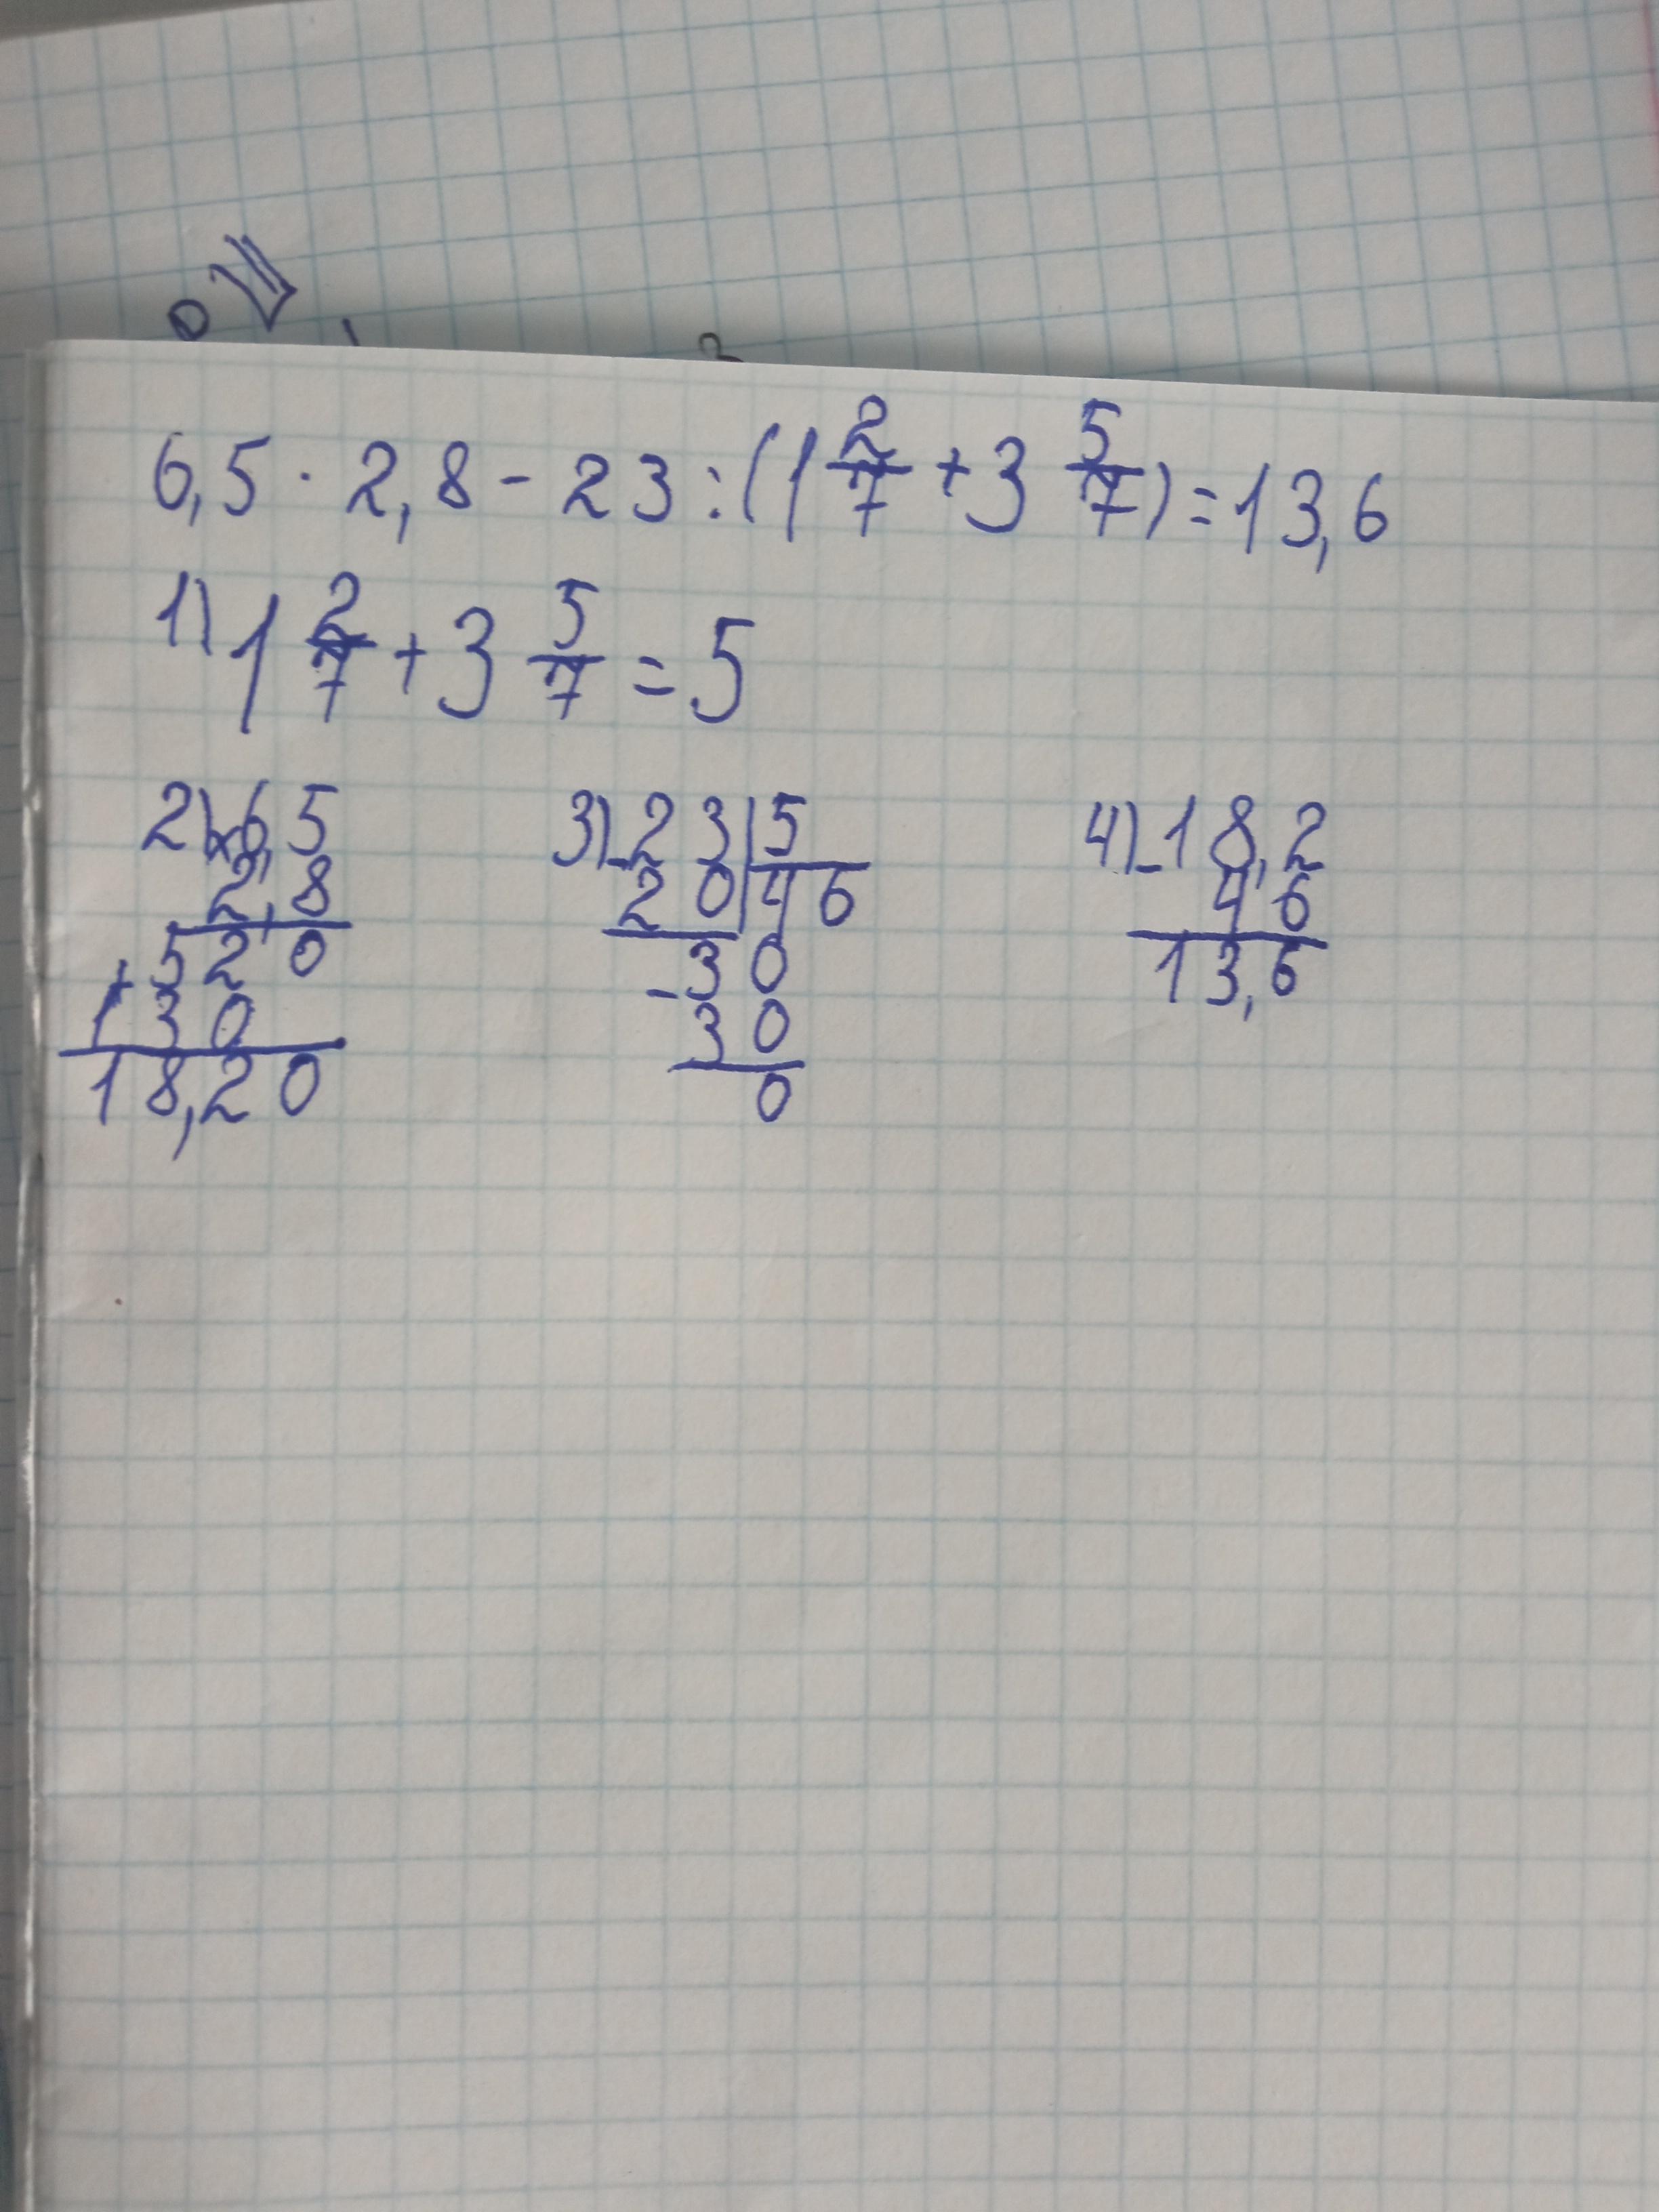 6,5 · 2,8 - 23 : (1 2/7 + 3 5/7) = 13,6
1) 1 2/7 + 3 5/7 = 5
2) × 6,5
2,8
+ 520
130
18,20
3) - 23 | 5
20 | 46
- 30
30
0
4) - 18,2
4 6
13,6